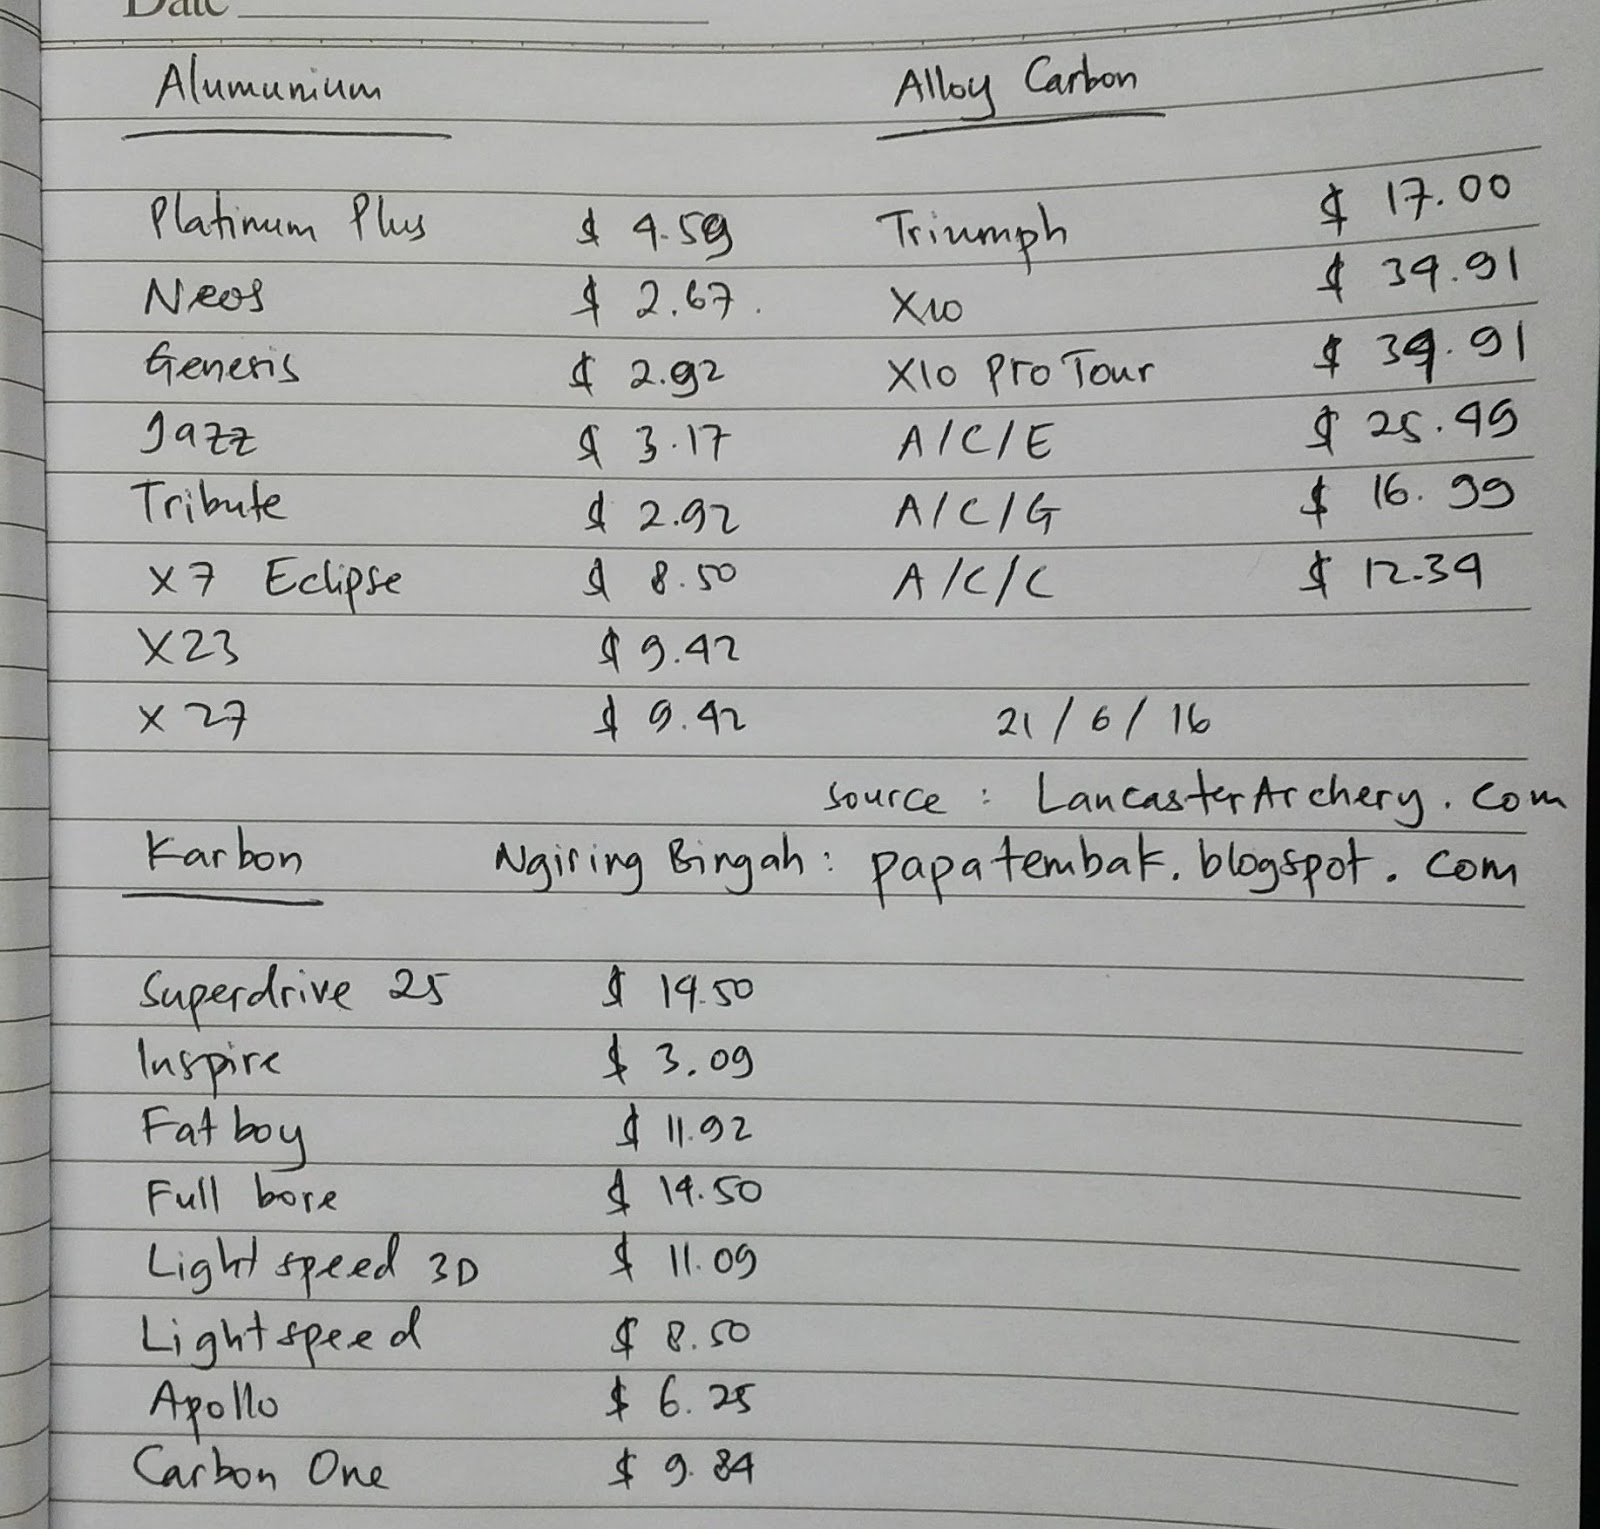 Date
Alumunium Alloy Carbon
Platinum Plus $ 4.59 Triumph $ 17.00
Neos $ 2.67. X10 $ 34.91
Genesis $ 2.92 X10 Pro Tour $ 34.91
Jazz $ 3.17 A/C/E $ 25.49
Tribute $ 2.92 A/C/G $ 16.99
X7 Eclipse $ 8.50 A/C/C $ 12.34
X23 $ 9.42
X27 $ 9.42 21/6/16
source : LancasterArchery.com
Karbon Ngiring Bingah : papatembak.blogspot.com
Superdrive 25 $ 14.50
Inspire $ 3.09
Fatboy $ 11.92
Full bore $ 14.50
Lightspeed 3D $ 11.09
Lightspeed $ 8.50
Apollo $ 6.25
Carbon One $ 9.84